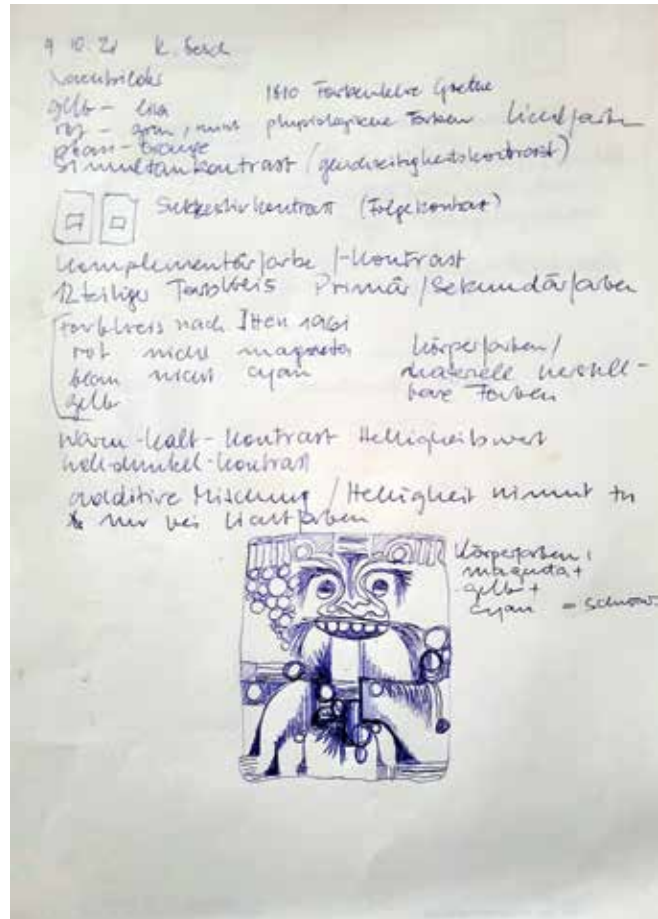 10. 21 K.
gelb - lila 1810 Farbenlehre Goethe
rot - grün, physiologische Farben Lichtfarben
blau - orange
Simultankontrast (gleichzeitigkeitskontrast)
Sukkessivkontrast (Folgekontrast)
Komplementärfarbe /-kontrast
12teiliger Farbkreis Primär/Sekundärfarben
Farbkreis nach Itten 1961
rot nicht magenta Körperfarben/
blau nicht cyan materielle herstell-
gelb bare Farben
Warm-kalt-kontrast Helligkeitswert
hell-dunkel-kontrast
additive Mischung / Helligkeit nimmt zu
nur bei Lichtfarben
Körperfarben:
magenta +
gelb +
cyan =